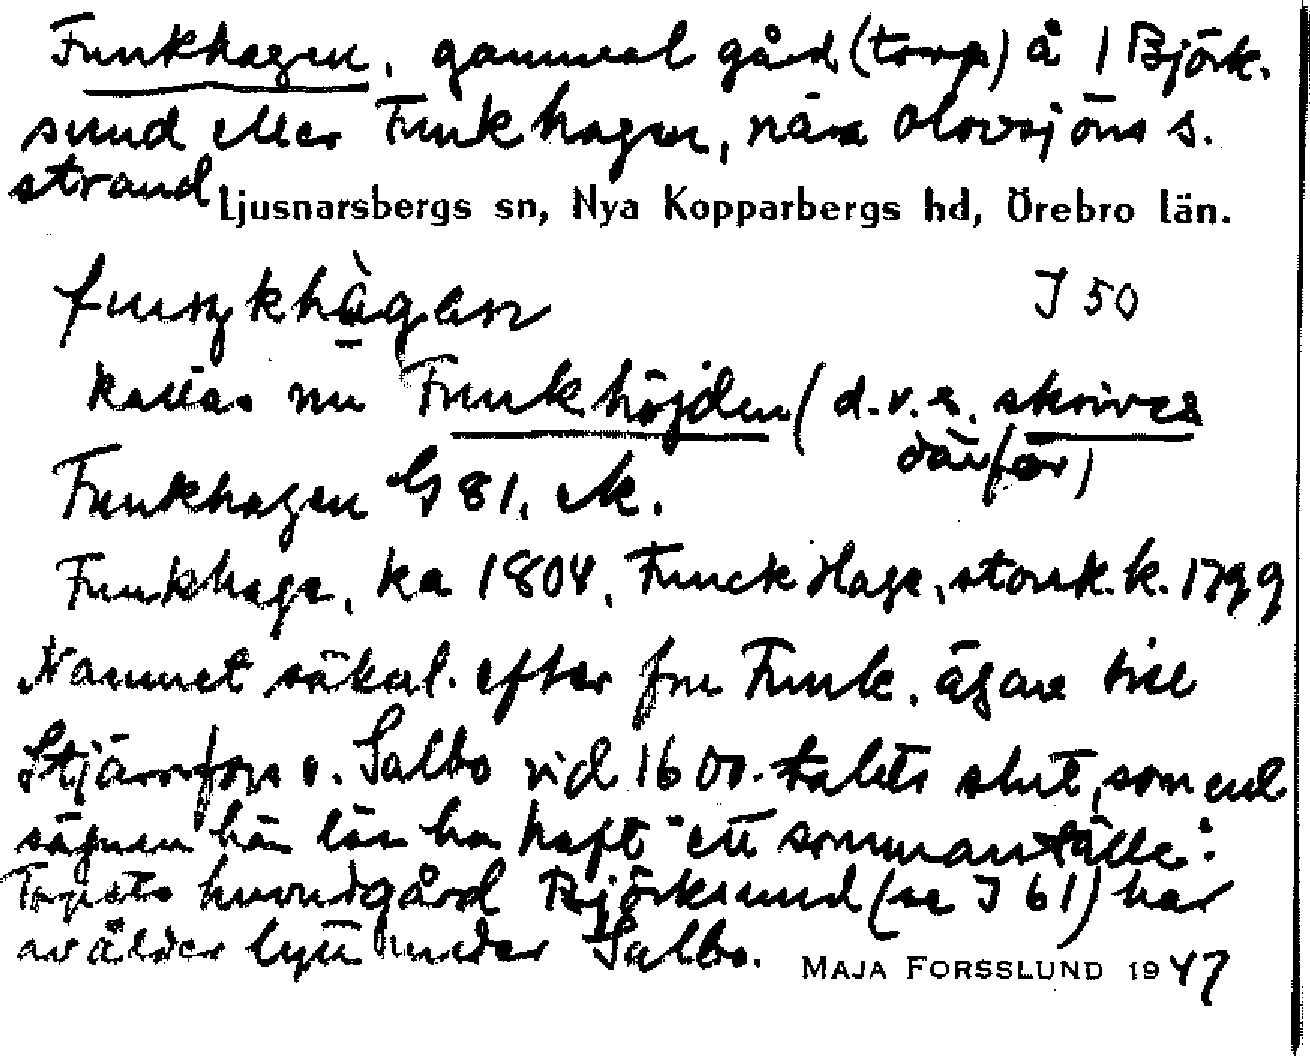 Funkhagen, gammal gård (torp) å 1 Björk-
sund eller Funkhagen, nära Olovsjöns s.
strand
Ljusnarsbergs sn, Nya Kopparbergs hd, Örebro län.
fuŋkhàgen J 50
kallas nu Funkhöjden (d.v.s. skrives
därför)
Funkhagen G 81. ek.
Funkhage, ka 1804, Funck Hage, storsk.k. 1799
Namnet säkerl. efter fru Funk, ägare till
Stjärnfors o. Salbo vid 1600-talets slut, som enl
sägnen här lär ha haft "ett sommarställe".
Torpets huvudgård Björksund (se J 61) har
av ålder lytt under Salbo.
MAJA FORSSLUND 1947